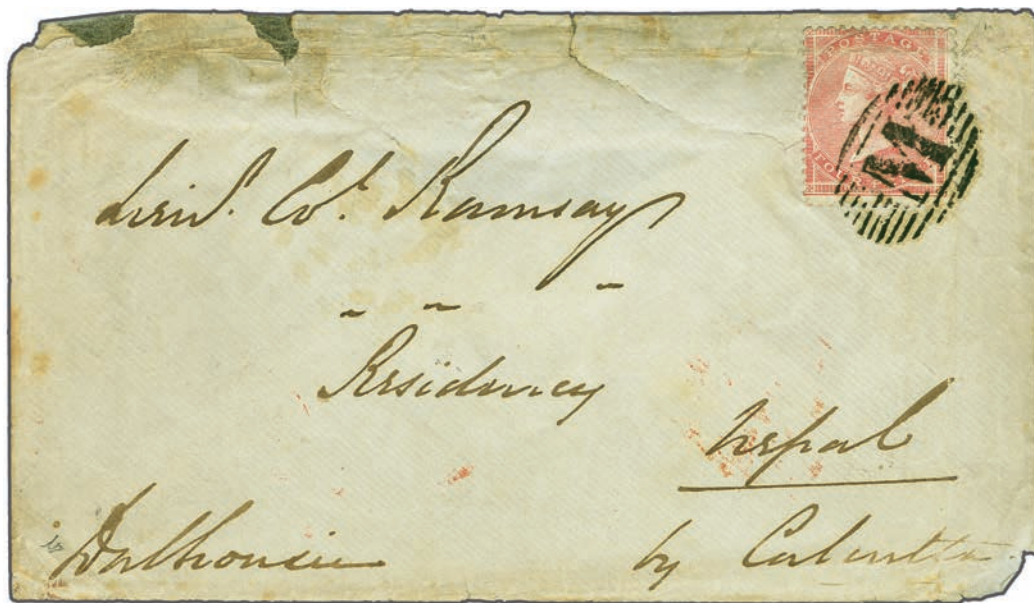 POSTAGE
FOUR
M
Lieut. Col. Ramsay
Residency
Nepal
Dalhousie
by Calcutta